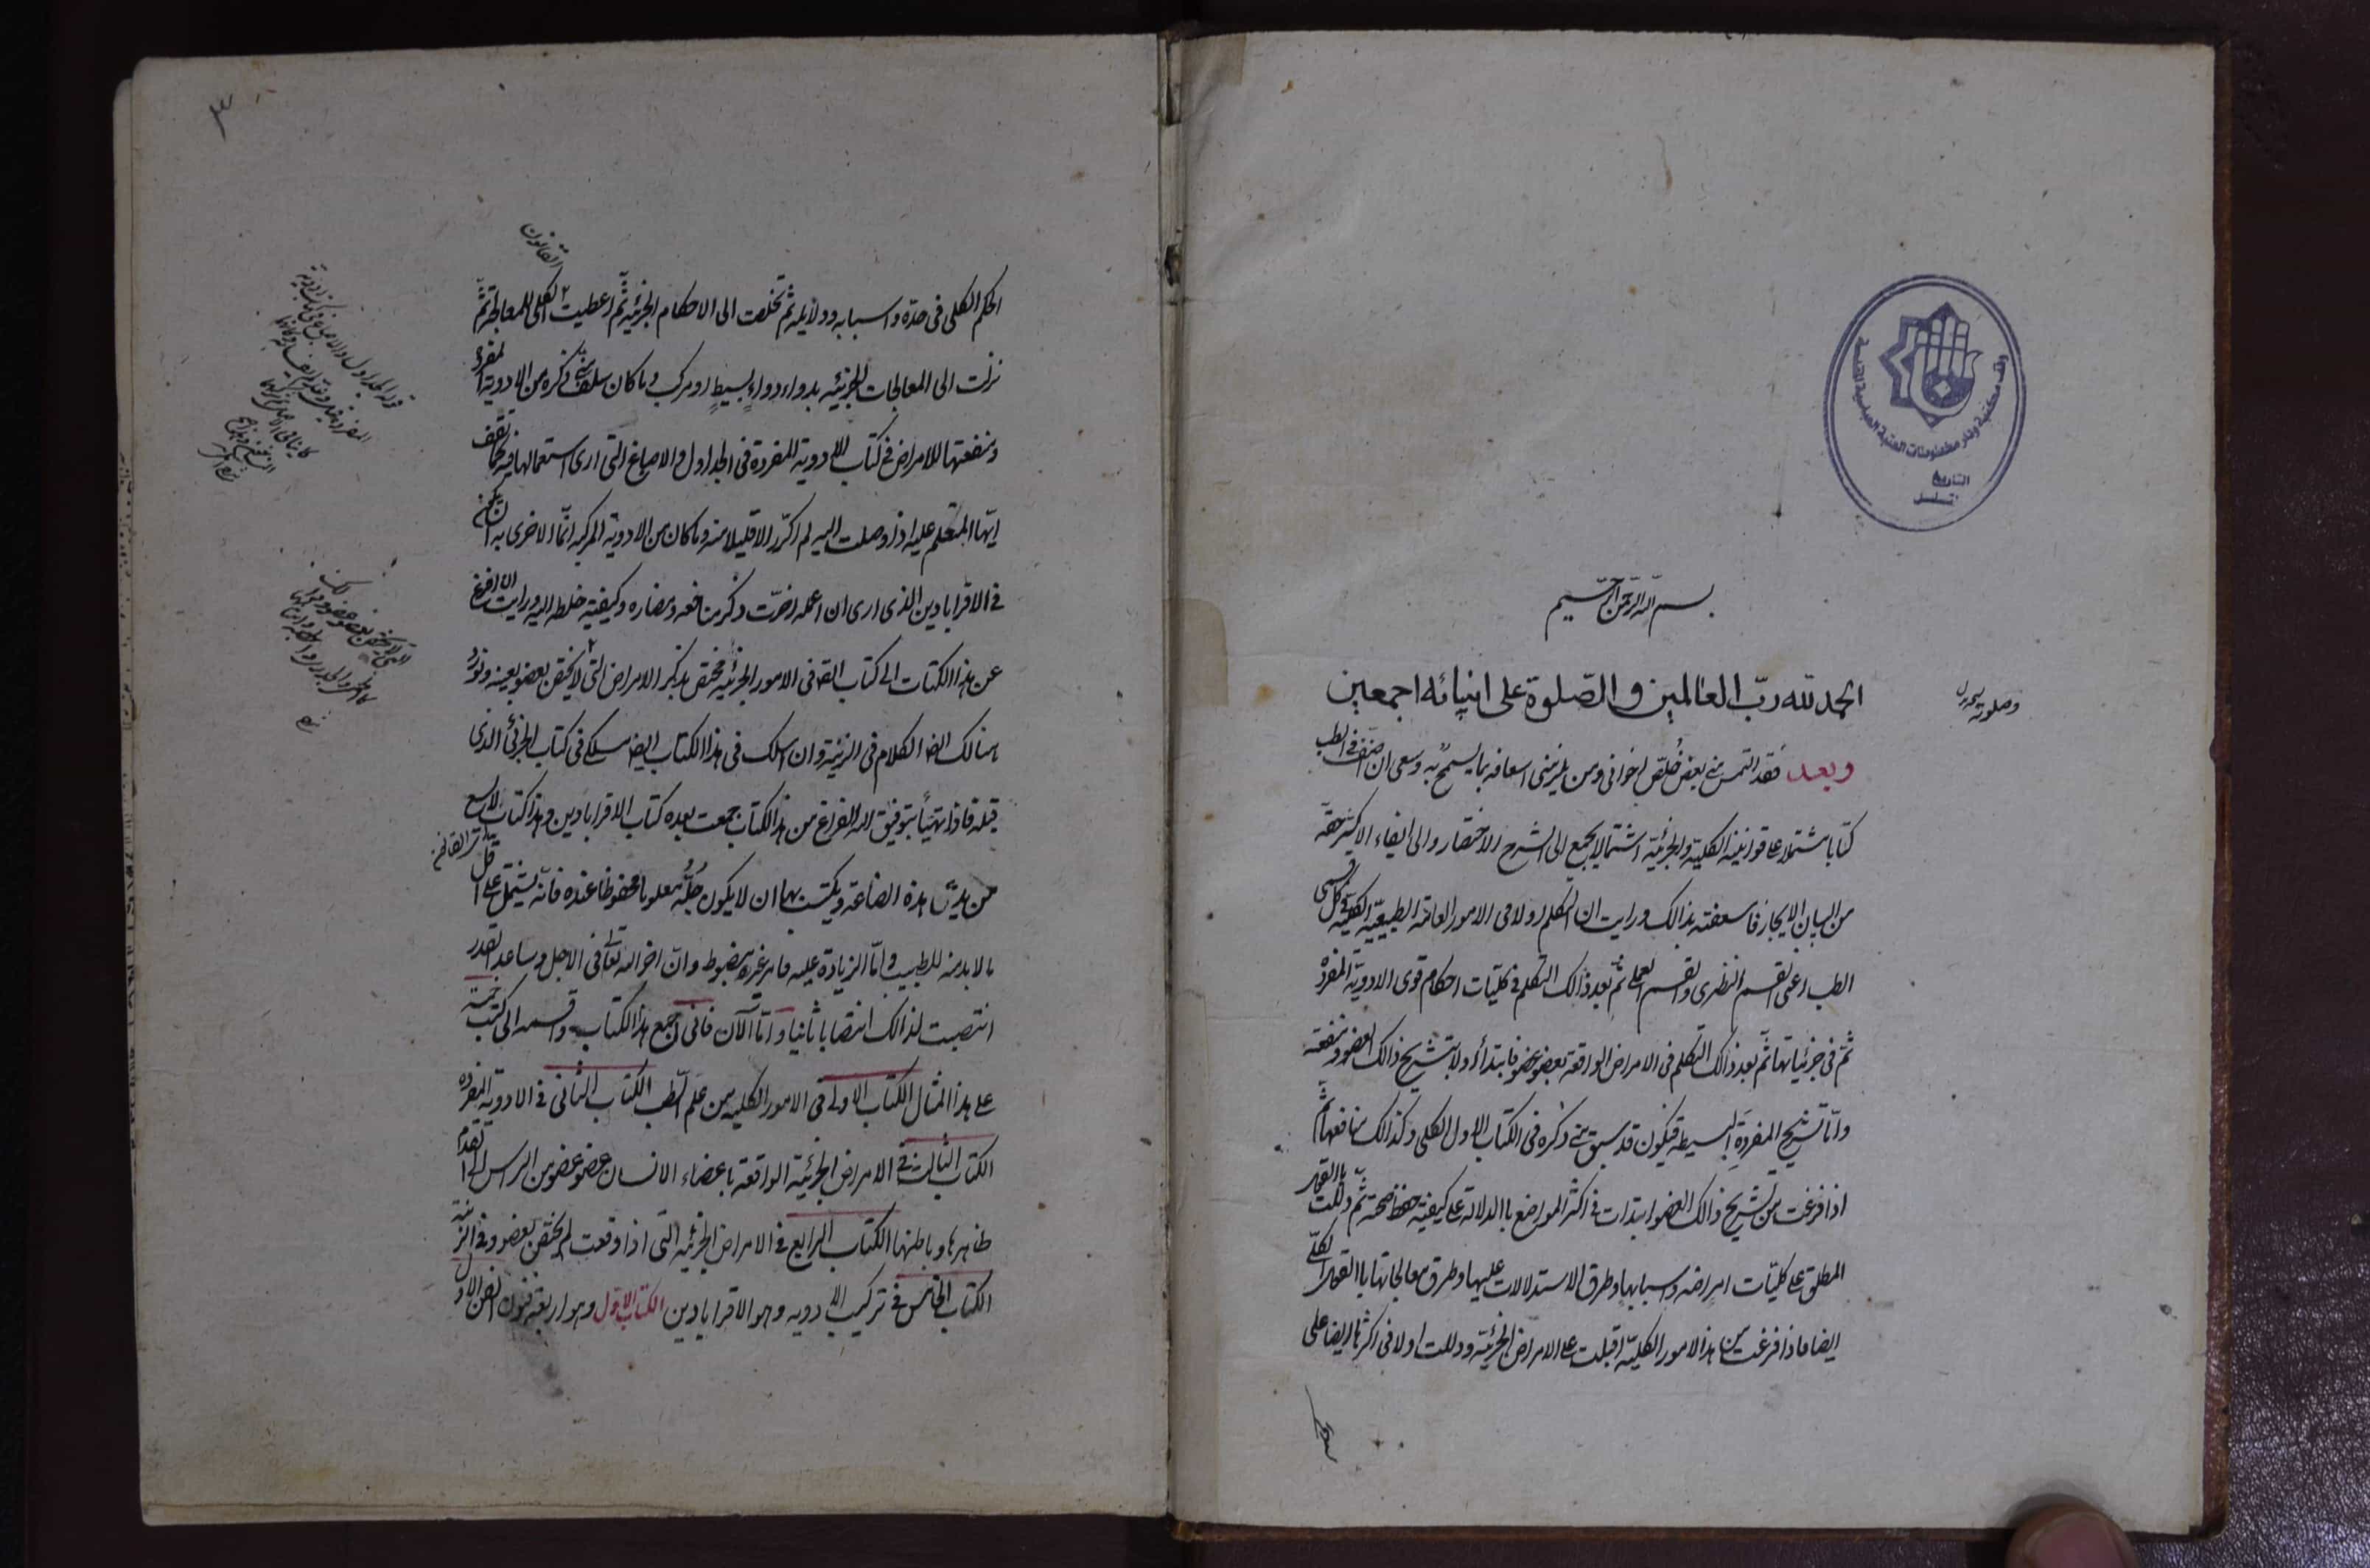 بسم الله الرحمن الرحيم
الحمد لله ربّ العالمين والصّلوة على انبيائه اجمعين
وبعد فقد التمس منى بعض خُلّص اخوانى ومن يلزمنى اسعافه بما يسمح به وسعى ان اصنف فى الطب
كتابا مشتملا على قوانينه الكلية والجزئية اشتمالا يجمع الى الشرح الاختصار والى ايفاء الاكثر حقه
من البيان الايجاز فاسعفته بذالك ورايت ان اتكلم اولا فى الامور العامة الطبيعيّة الكلية فى كل قسمى
الطب اعنى القسم النظرى والقسم العملى ثم بعد ذالك اتكلم فى كليّات احكام قوى الادوية المفردة
ثمّ فى جزئياتها ثم بعد ذالك اتكلم فى الامراض الواقعة بعضو عضو فابتدأ اولا بتشريح ذالك العضو ومنفعته
وامّا تشريح المفردة البسيطة فيكون قد سبق منى ذكره فى الكتاب الاول الكلى وكذالك منافعها ثمّ
اذا فرغت من تشريح ذالك العضو ابتدات فى اكثر المواضع باالدلالة على كيفية حفظ صحته ثمّ دللت باالقول
المطلق على كليّات امراضه واسبابها وطرق الاستدلالات عليها وطرق معالجاتها باالقول الكلّى
ايضا فاذا فرغت من هذا الامور الكليّة اقبلت على الامراض الجزئية ودللت اولا فى اكثرها ايضا على
وقف مكتبة ودار مخطوطات العتبة العباسية المقدسة
التاريخ
تسلسل
الحكم الكلى فى حدّه واسبابه ودلايله ثم تخلصت الى الاحكام الجزئية ثمّ اعطيت القانون الكلى للمعالجة ثمّ
نزلت الى المعالجات الجزئيه بدواء دواء بسيط او مركب وما كان سلف منى ذكره من الادوية المفردة
ومنفعتها للامراض فى كتاب الادوية المفردة فى الجداول والاصباغ التى ارى استعمالها فيه كما تقف
ايّها المتعلم عليه اذا وصلت اليه لم اكرّر الا قليلا منه وما كان من الادوية المركبه انّما الاحرى به ان يكون
فى الاقراباذين الذى ارى ان اعمله اخرّت ذكر منافعه ومضاره وكيفية خلطه اليه ورايت ان افرغ
عن هذا الكتاب الى كتاب ايضا فى الامور الجزئية مختص بذكر الامراض التى لا يختص بعضو بعينه ونورد
هنالك ايضا الكلام فى الزينة وان اسلك فى هذا الكتاب ايضا مسلكى فى كتاب الجزئى الذى
قبله فاذا تهيّأ بتوفيق الله الفراغ من هذا الكتاب جمعت بعده كتاب الاقرابادين وهذا كتاب لا يسع
من يدعى هذه الصناعة ويكتسب بها ان لا يكون جُلّه معلوما محفوظا عنده فانّه يشتمل على اقل
ما لا بد منه للطبيب وامّا الزيادة عليه فامر غير مضبوط وان اخر الله تعالى فى الاجل وساعد القدر
انتصبت لذالك انتصابا ثانيا وامّا الآن فانى اجمع هذا الكتاب واقسمه الى كتب خمسة
على هذا المثال الكتاب الاول فى الامور الكليه من علم الطب الكتاب الثانى فى الادوية المفرده
الكتاب الثالث فى الامراض الجزئية الواقعة باعضاء الانسان عضو عضو من الراس الى القدم
ظاهرها وباطنها الكتاب الرابع فى الامراض الجزئيه التى اذا وقعت لم يختص بعضو وفى الزينة
الكتاب الخامس فى تركيب الادويه وهو الاقرابادين الكتاب الاول وهو اربعة فنون الفن الاول